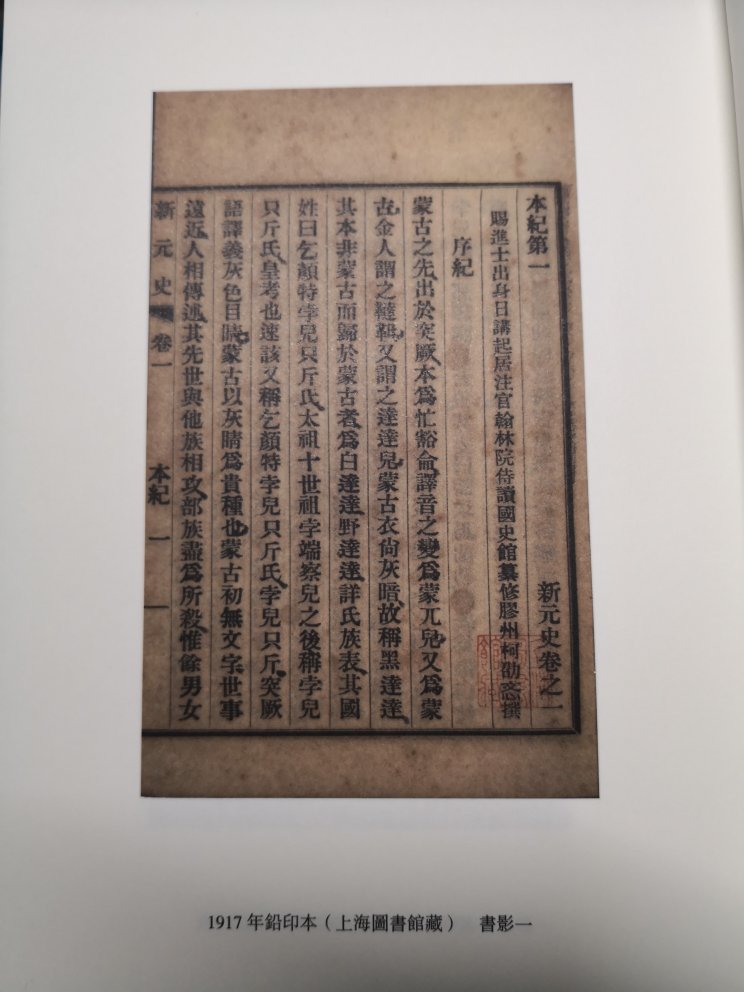 本紀第一 新元史卷之一
賜進士出身日講起居注官翰林院侍讀國史館纂修膠州柯劭忞撰
序紀
蒙古之先出於突厥、本為忙豁侖、譯音之變為蒙兀兒、又為蒙
古、金人謂之韃靼、又謂之達達兒、蒙古衣尙灰暗、故稱黑達達、
其本非蒙古而歸於蒙古者、為白達達、野達達、詳氏族表、其國
姓曰乞顏特孛兒只斤氏、太祖十世祖孛端察兒之後、稱孛兒
只斤氏、皇考也速該又稱乞顏特孛兒只斤氏、孛兒只斤、突厥
語譯義灰色目睛、蒙古以灰睛為貴種也、蒙古初無文字、世事
遠近、人相傳述、其先世與他族相攻、部族盡為所殺、惟餘男女
新元史 卷一 本紀 一
1917年鉛印本（上海圖書館藏） 書影一